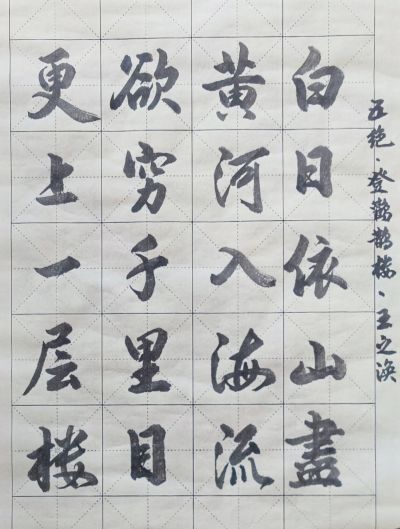 五绝、登鹳鹊楼、王之涣
白日依山盡
黄河入海流
欲穷千里目
更上一层楼